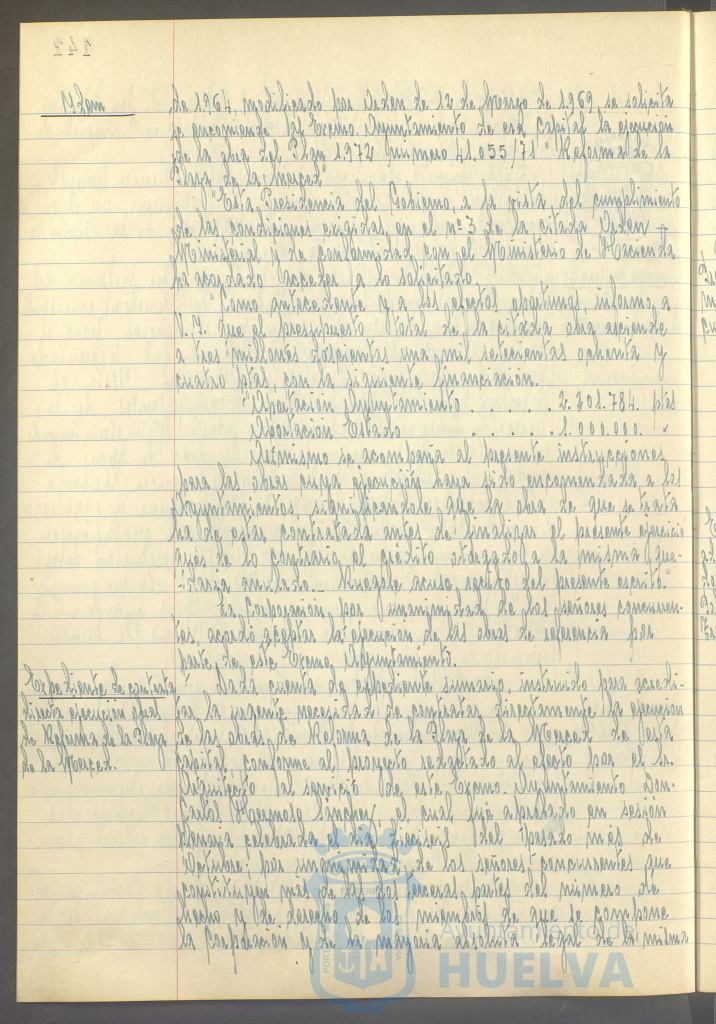 142
Idem
de 1.964, modificado por Orden de 12 de Marzo de 1.969, se solicita
se encomiende al Excmo. Ayuntamiento de esa capital la ejecución
de la obra del Plan 1.972 número 41.055/71 "Reforma de la
Plaza de la Merced".
"Esta Presidencia del Gobierno, a la vista del cumplimiento
de las condiciones exigidas en el nº 3 de la citada Orden
Ministerial y de conformidad con el Ministerio de Hacienda
ha acordado acceder a lo solicitado.
"Como antecedente y a los efectos oportunos, informo a
V.I. que el presupuesto total de la citada obra asciende
a tres millones doscientas una mil setecientas ochenta y
cuatro ptas, con la siguiente financiación.
"Aportación Ayuntamiento . . . . . . 2.201.784. ptas
Aportación Estado . . . . . 1.000.000. "
Asimismo se acompaña al presente instrucciones
para las obras cuya ejecución haya sido encomendada a los
Ayuntamientos, significándole que la obra de que se trata
ha de estar contratada antes de finalizar el presente ejercicio
pues de lo contrario el crédito otorgado a la misma que-
daría anulado.- Ruégole acuse recibo del presente escrito."
La Corporación, por unanimidad de los señores concurren-
tes, acordó aceptar la ejecución de las obras de referencia por
parte de este Excmo. Ayuntamiento.
Expediente de contrata
directa ejecución obras
de Reforma de la Plaza
de la Merced.
Dada cuenta de expediente sumario, instruido para acredi-
tar la urgente necesidad de contratar directamente la ejecución
de las obras de Reforma de la Plaza de la Merced de esta
capital, conforme al proyecto redactado al efecto por el Sr.
Arquitecto al servicio de este Excmo. Ayuntamiento Don
Hermoso Sánchez, el cual fué aprobado en sesión
plenaria celebrada el día dieciseis del pasado mes de
Octubre; por unanimidad de los señores concurrentes que
constituyen más de las dos terceras partes del número de
hecho y de derecho de los miembros de que se compone
la Corporación y de la mayoría absoluta legal de la misma
Ayuntamiento de
HUELVA